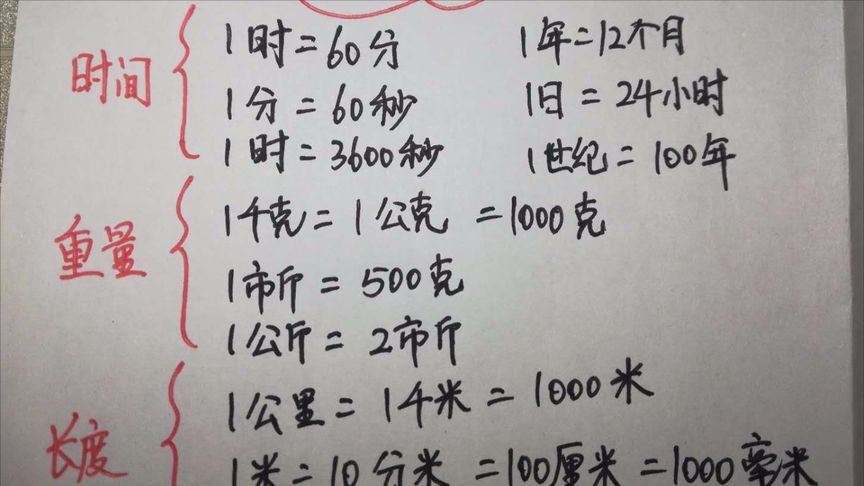 时间
1时=60分 1年=12个月
1分=60秒 1日=24小时
1时=3600秒 1世纪=100年
重量
1千克=1公克=1000克
1市斤=500克
1公斤=2市斤
长度
1公里=1千米=1000米
1米=10分米=100厘米=1000毫米